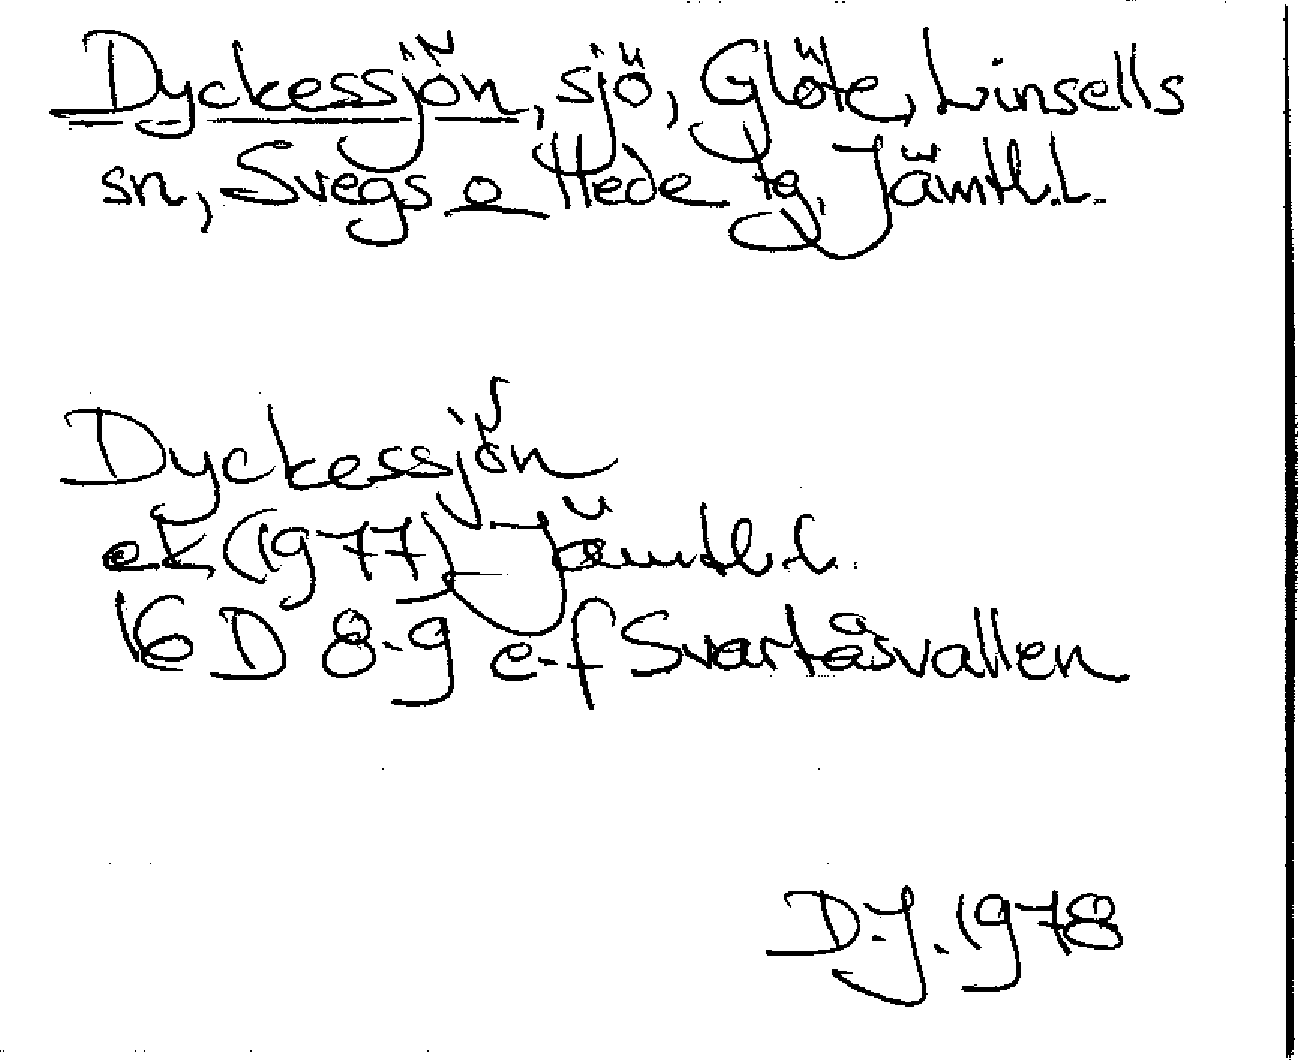 Dyckessjön, sjö, Glöte, Linsells
sn, Svegs o Hede tg, Jämtl.l.
Dyckessjön
ek (1977) Jämtl.l.
16 D 8-g e-f Svartåsvallen
D.J. 1978